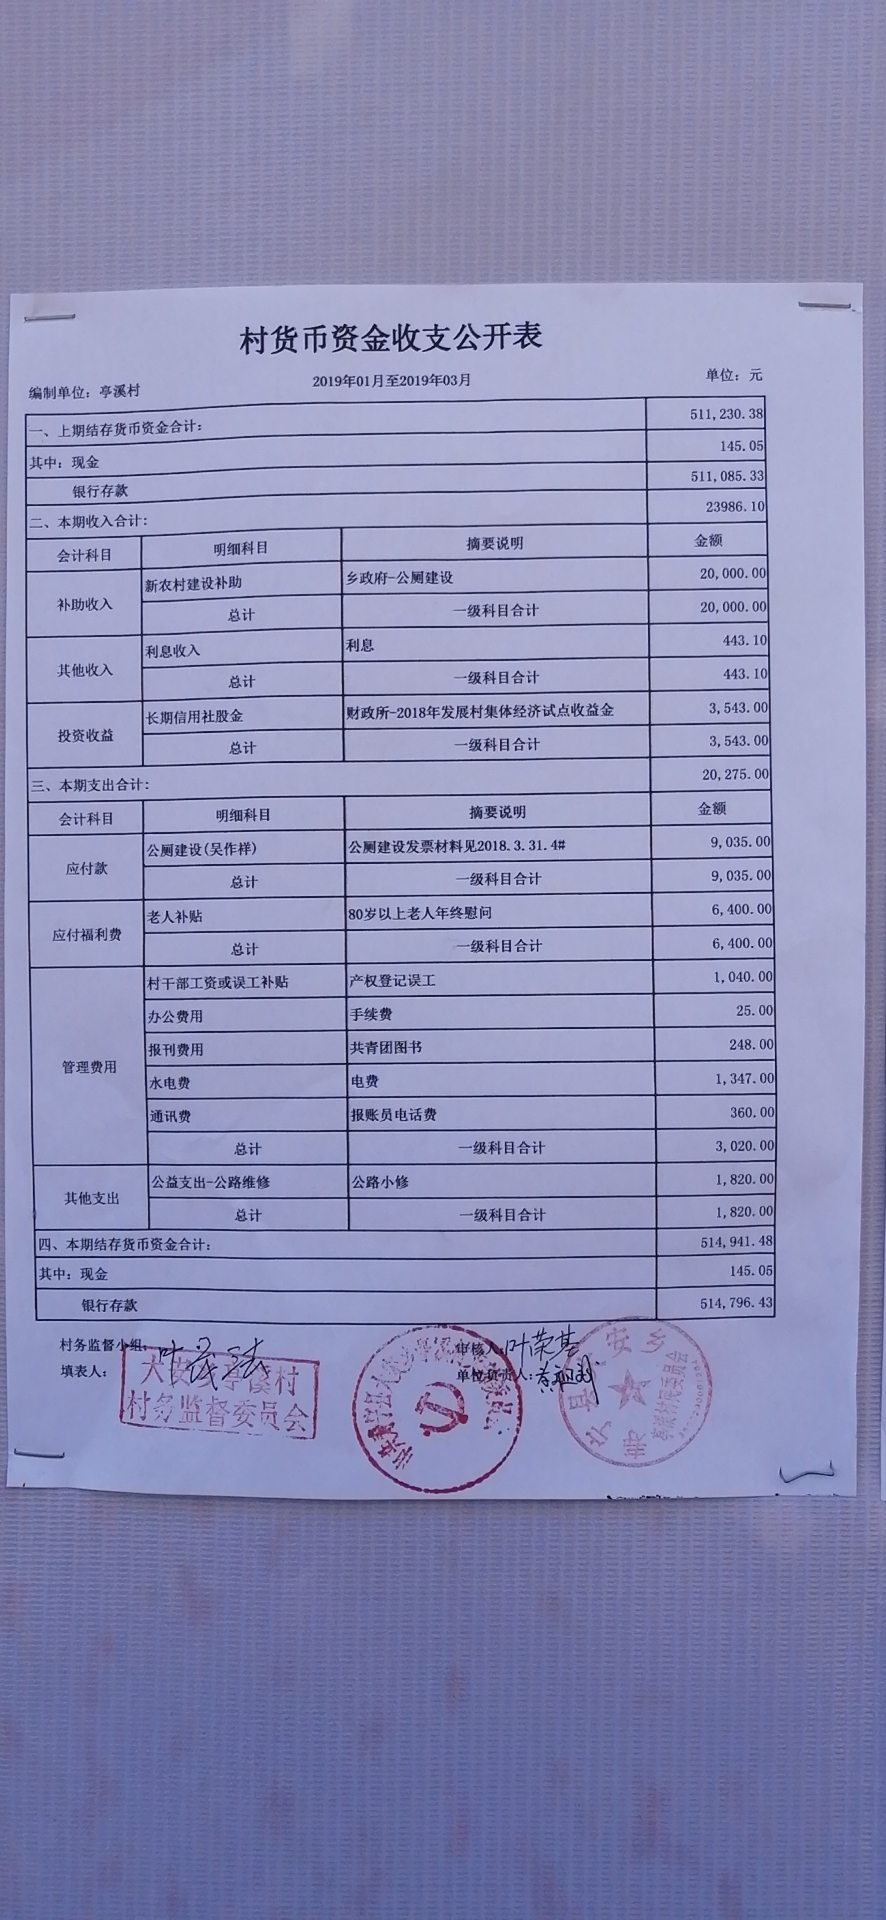 村货币资金收支公开表
编制单位：亭溪村 2019年01月至2019年03月 单位：元
一、上期结存货币资金合计： 511,230.38
其中：现金 145.05
银行存款 511,085.33
二、本期收入合计: 23986.10
会计科目 明细科目 摘要说明 金额
补助收入 新农村建设补助 乡政府-公厕建设 20,000.00
总计 一级科目合计 20,000.00
其他收入 利息收入 利息 443.10
总计 一级科目合计 443.10
投资收益 长期信用社股金 财政所-2018年发展村集体经济试点收益金 3,543.00
总计 一级科目合计 3,543.00
三、本期支出合计: 20,275.00
会计科目 明细科目 摘要说明 金额
应付款 公厕建设(吴作祥) 公厕建设发票材料见2018.3.31.4# 9,035.00
总计 一级科目合计 9,035.00
应付福利费 老人补贴 80岁以上老人年终慰问 6,400.00
总计 一级科目合计 6,400.00
管理费用 村干部工资或误工补贴 产权登记误工 1,040.00
办公费用 手续费 25.00
报刊费用 共青团图书 248.00
水电费 电费 1,347.00
通讯费 报账员电话费 360.00
总计 一级科目合计 3,020.00
其他支出 公益支出-公路维修 公路小修 1,820.00
总计 一级科目合计 1,820.00
四、本期结存货币资金合计： 514,941.48
其中：现金 145.05
银行存款 514,796.43
村务监督小组: 审核人: 叶荣基
填表人： 单位负责人:
大安乡亭溪村
村务监督委员会